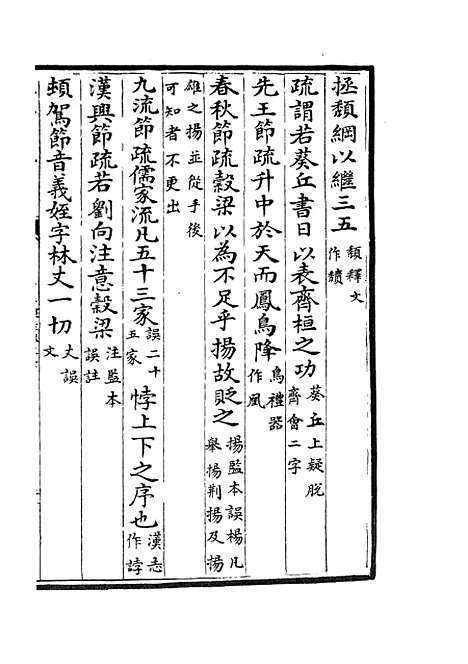 拯頽綱以繼三五頽釋文作䫋
疏謂若葵丘書日以表齊桓之功葵丘上疑脫齊會二字
先王節疏升中於天而鳳鳥降鳥禮器作凰
春秋節疏穀梁以為不足乎揚故貶之揚監本誤楊凡舉揚荆揚及揚
雄之揚並從手後可知者不更出
九流節疏儒家流凡五十三家誤二十五家悖上下之序也漢志作誖
漢興節疏若劉向注意穀梁注監本誤註
蚻駕節音義姪字林丈一切丈誤文